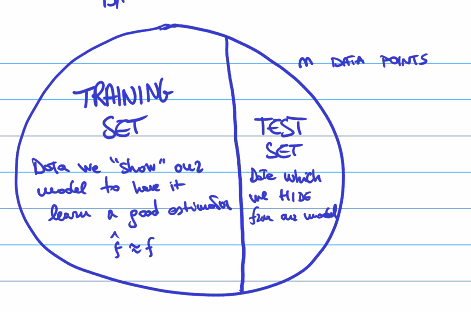 m DATA POINTS
TRAINING
SET
Data we "show" our
model to have it
learn a good estimator
f̂ ≈ f
TEST
SET
Data which
we HIDE
from our model